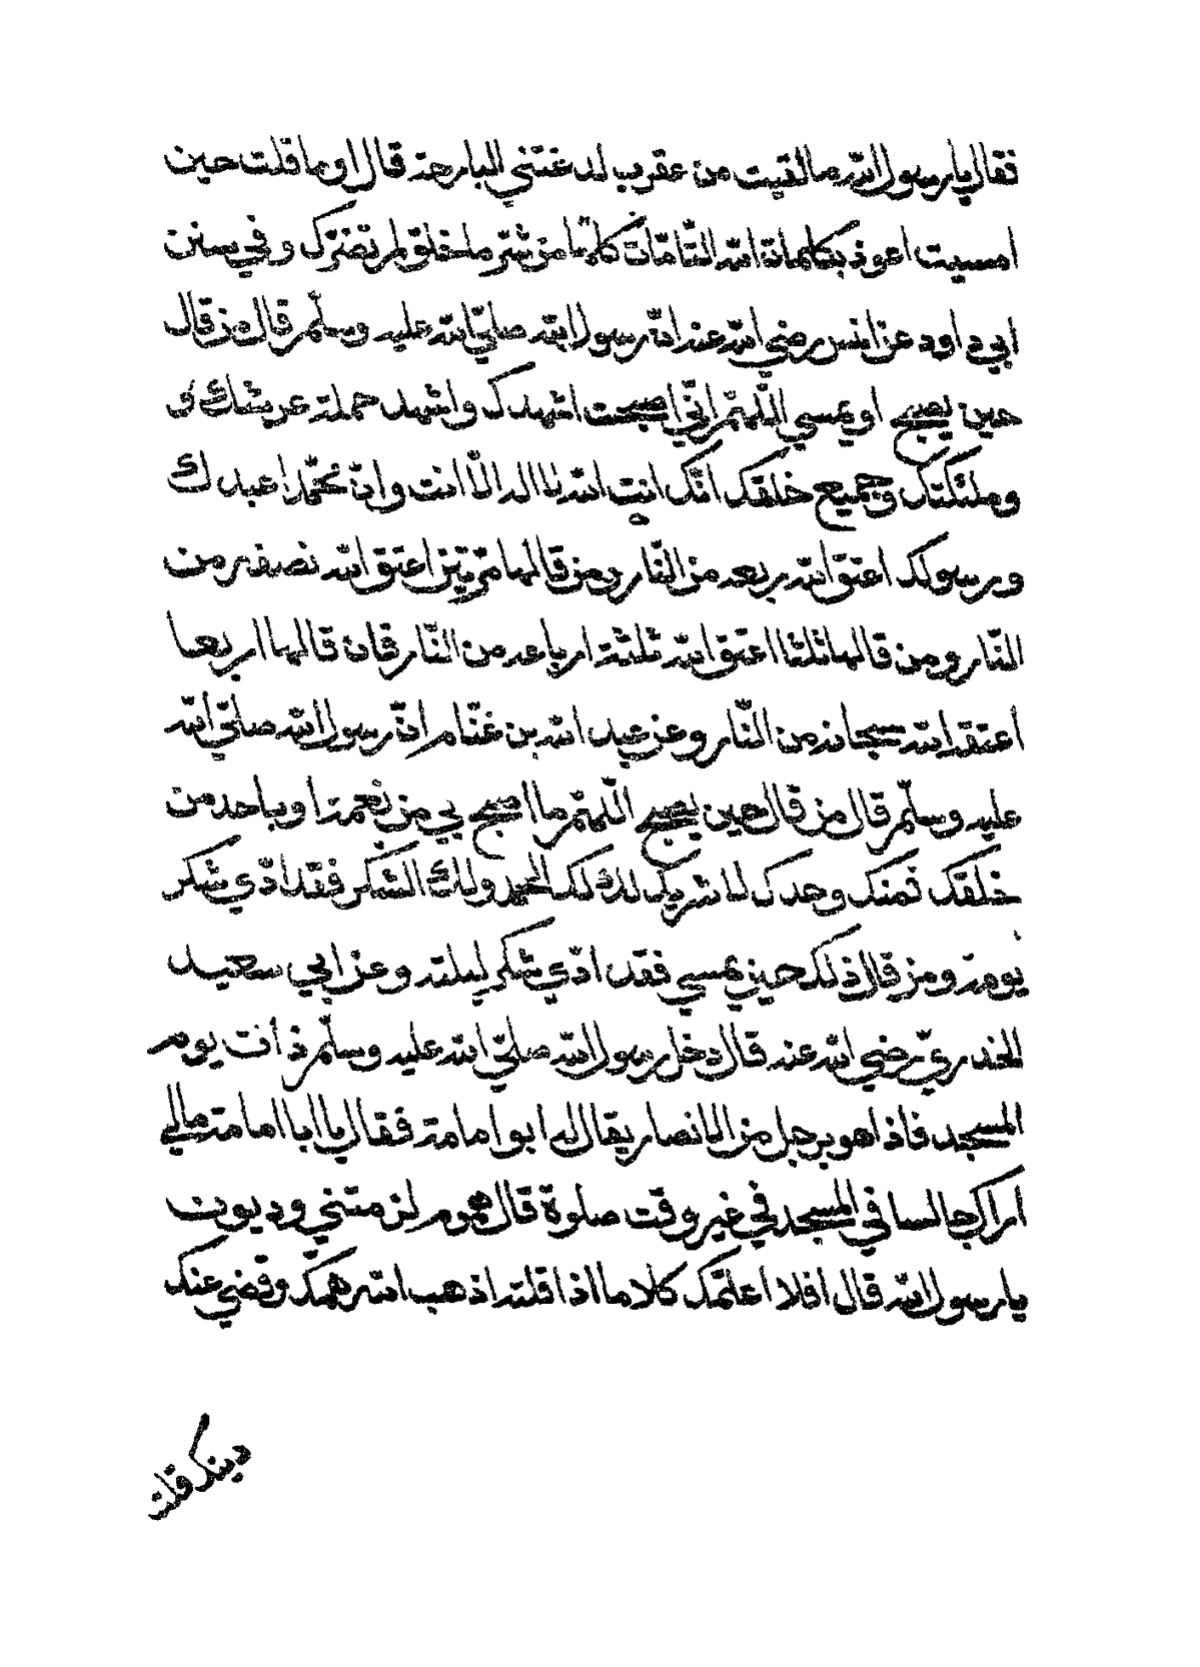 فقال يا رسول الله ما لقيت من عقرب لدغتني البارحة قال او ما قلت حين
امسيت اعوذ بكلمات الله التامّات كلها من شرّ ما خلق لم تضرّك وفي سنن
ابي داود عن انس رضي الله عنه انّ رسول الله صلّي الله عليه وسلّم قال من قال
حين يصبح او يمسي اللّهمّ انّي اصبحت اشهدك واشهد حملة عرشك و
وملئكتك وجميع خلقك انّك انت الله لا اله الّا انت وانّ محمّدا عبدك
ورسولك اعتق الله ربعه من النّار ومن قالها مرّتين اعتق الله نصفه من
النّار ومن قالها ثلثا اعتق الله ثلثة ارباعه من النّار فان قالها اربعا
اعتقه الله سبحانه من النّار وعن عبد الله بن غنّام انّ رسول الله صلّي الله
عليه وسلّم قال من قال حين يصبح اللّهمّ ما اصبح بي من نعمة او باحد من
خلقك فمنك وحدك لا شريك لك لك الحمد ولك الشكر فقد ادّي شكر
يومه ومن قال ذلك حين يمسي فقد ادّي شكر ليلته وعن ابي سعيد
الخدريّ رضي الله عنه قال دخل رسول الله صلّي الله عليه وسلّم ذات يوم
المسجد فاذا هو برجل من الانصار يقال له ابو امامة فقال يا ابا امامة مالي
اراك جالسا في المسجد في غير وقت صلوة قال هموم لزمتني وديون
يا رسول الله قال افلا اعلّمك كلاما اذا قلته اذهب الله همّك وقضي عنك
دينك قلت